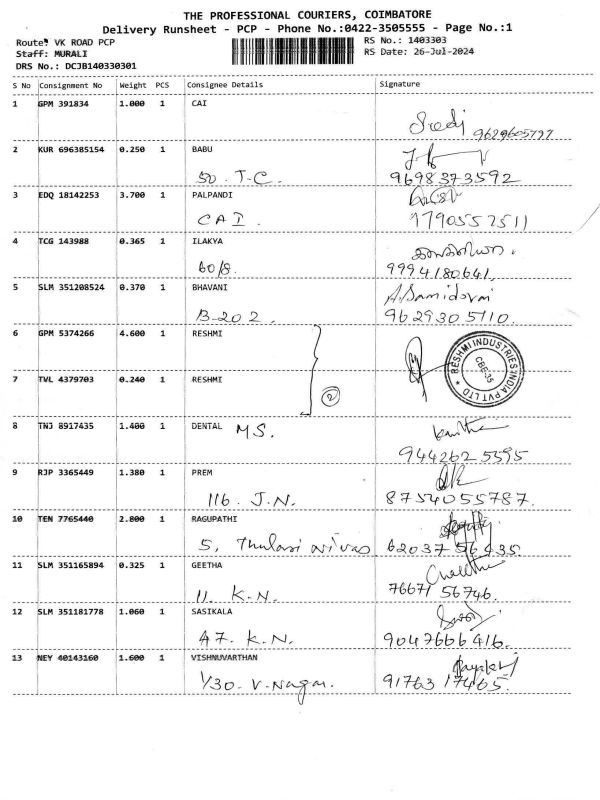 THE PROFESSIONAL COURIERS, COIMBATORE
Delivery Runsheet - PCP - Phone No.:0422-3505555 - Page No.:1
Route: VK ROAD PCP RS No.: 1403303
Staff: MURALI RS Date: 26-Jul-2024
DRS No.: DCJB140330301
S No Consignment No Weight PCS Consignee Details Signature
1 GPM 391834 1.000 1 CAI
9629605797
2 KUR 696385154 0.250 1 BABU
50. T-C. 9698373592
3 EDQ 18142253 3.700 1 PALPANDI
CAI. 9790557511
4 TCG 143988 0.365 1 ILAKYA
60/8. 9994180641.
5 SLM 351208524 0.370 1 BHAVANI A. Samidorai
B-202. 9629305710.
6 GPM 5374266 4.600 1 RESHMI
RESHMI INDUSTRIES INDIA PVT LTD * CBE-35
7 TVL 4379703 0.240 1 RESHMI
2
8 TNJ 8917435 1.400 1 DENTAL MS.
9442625595
9 RJP 3365449 1.380 1 PREM
116. J.N. 8754055787.
10 TEN 7765440 2.800 1 RAGUPATHI
5, Thulasi Nivas 62037 56435.
11 SLM 351165894 0.325 1 GEETHA
11. K.N. 76671 56746.
12 SLM 351181778 1.060 1 SASIKALA
47. K.N. 9047666416.
13 NEY 40143160 1.600 1 VISHNUVARTHAN
1/30. V.Nagar. 91763 17465.